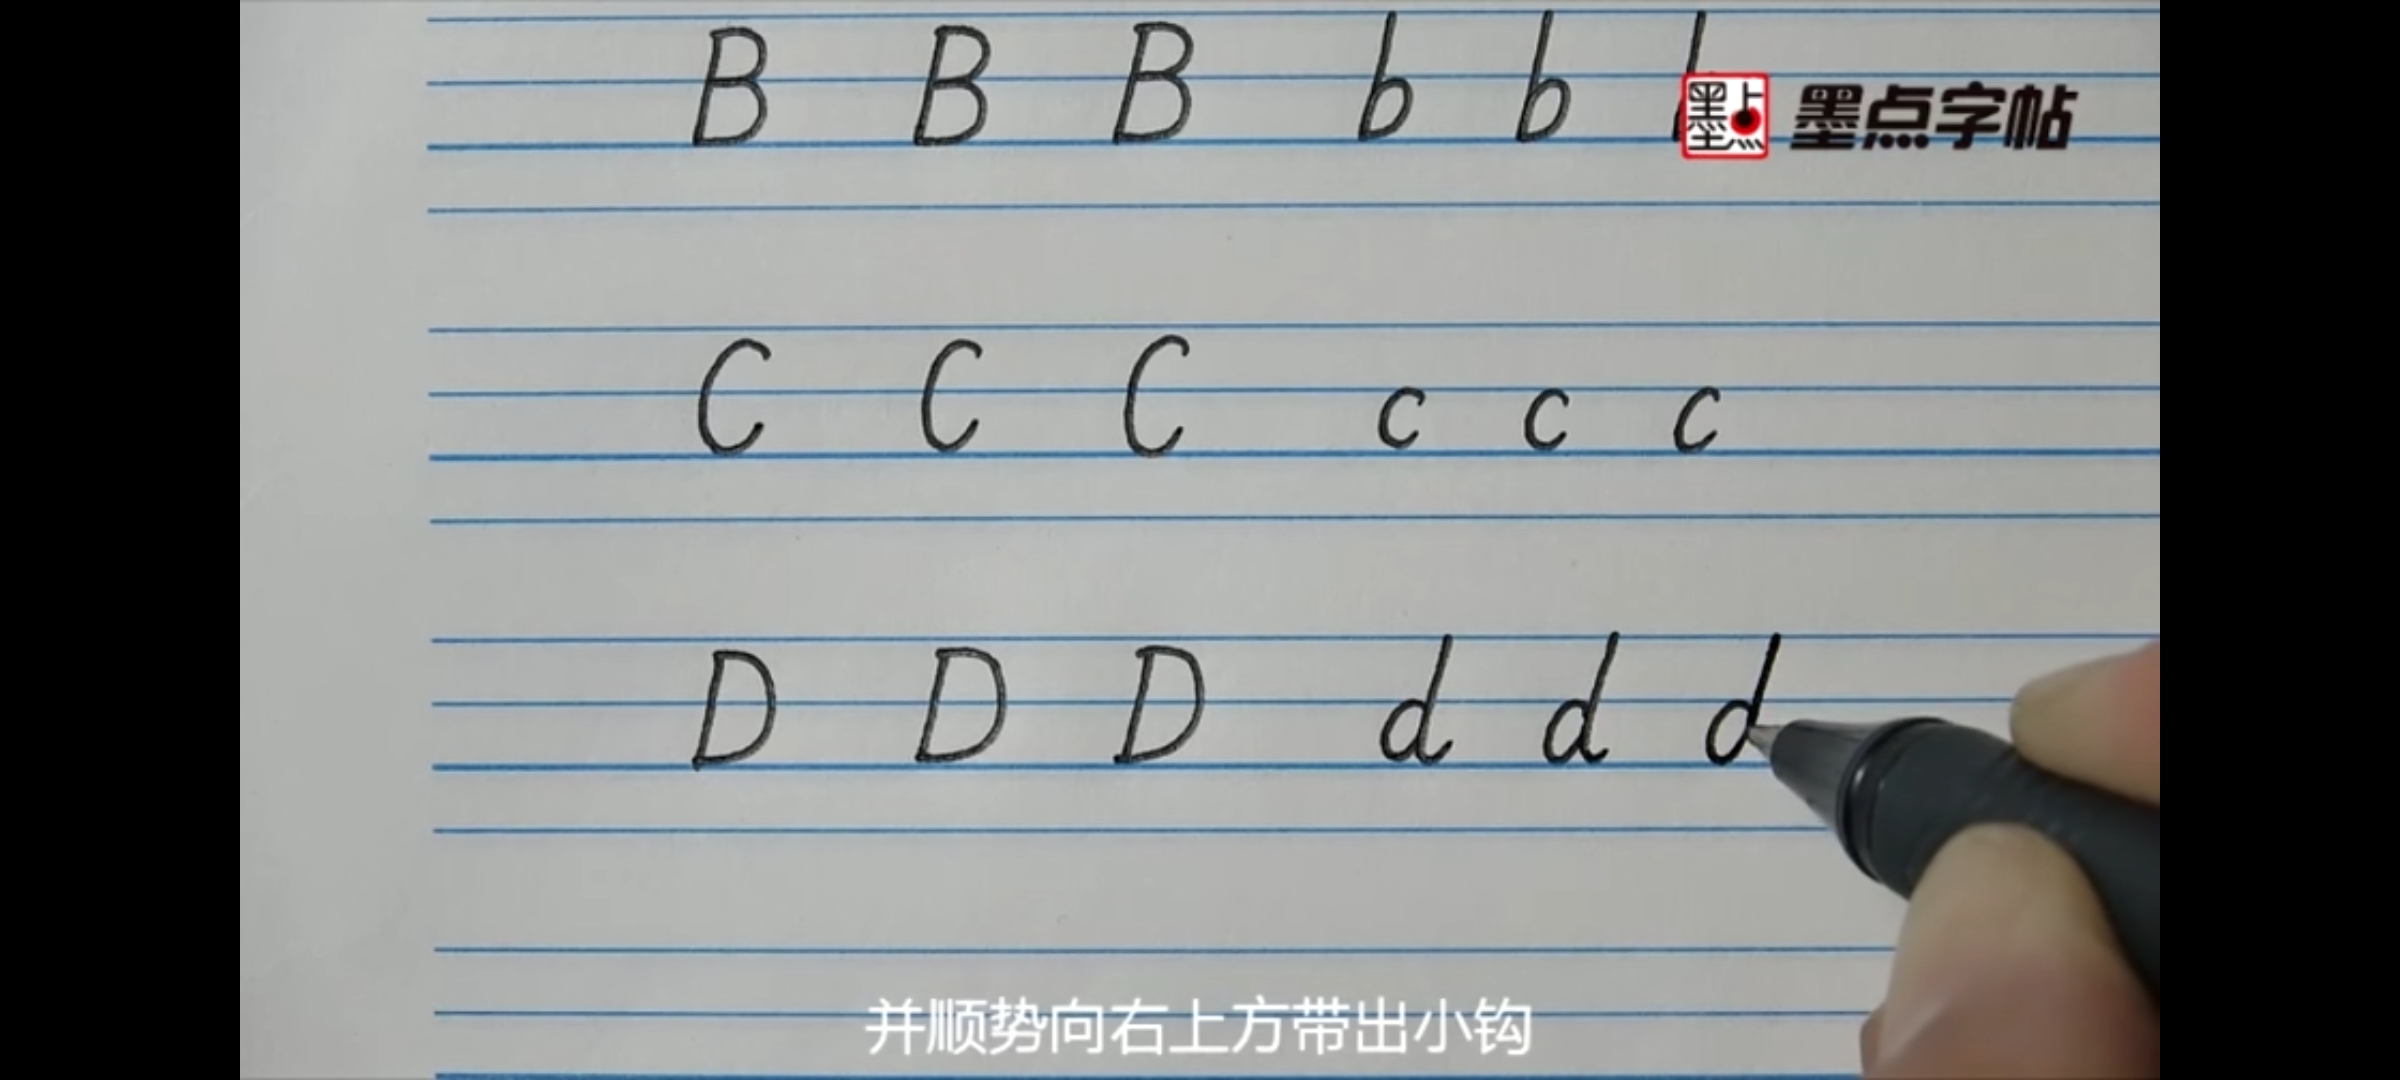 B B B b b
墨点 墨点字帖
C C C c c c
D D D d d d
并顺势向右上方带出小钩